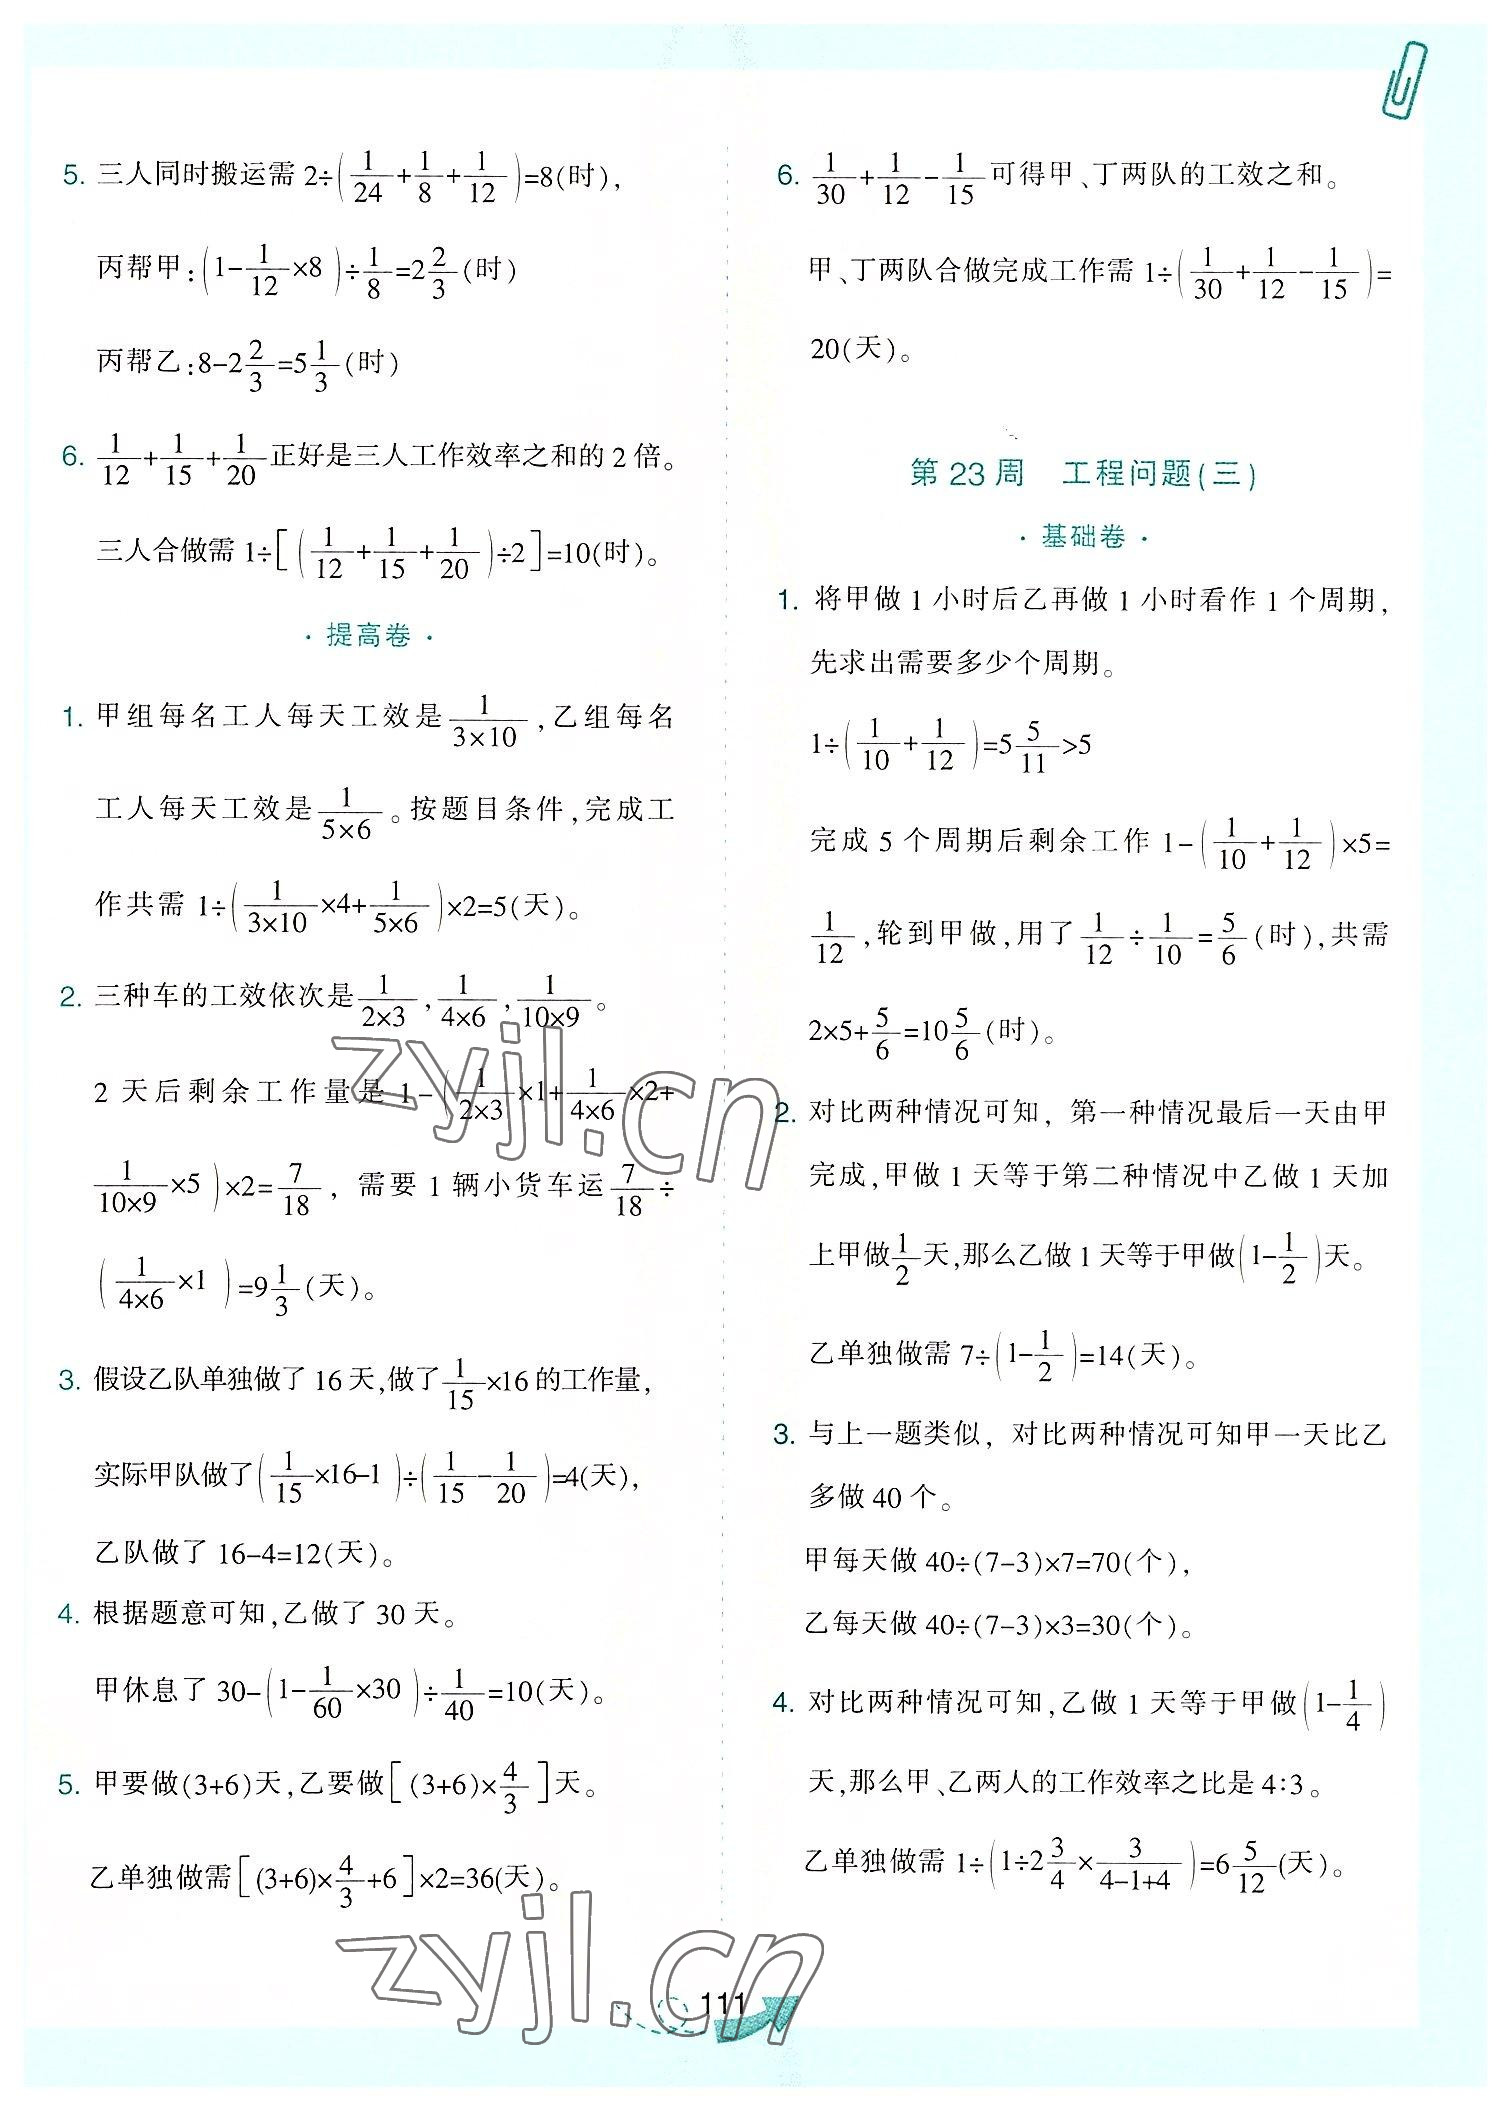 5. 三人同时搬运需 2÷(1/24+1/8+1/12)=8(时),
丙帮甲:(1-1/12×8)÷1/8=2 2/3(时)
丙帮乙:8-2 2/3=5 1/3(时)
6. 1/12+1/15+1/20正好是三人工作效率之和的 2 倍。
三人合做需 1÷[(1/12+1/15+1/20)÷2]=10(时)。
·提高卷·
1. 甲组每名工人每天工效是1/(3×10),乙组每名
工人每天工效是1/(5×6)。按题目条件,完成工
作共需 1÷(1/(3×10)×4+1/(5×6))×2=5(天)。
2. 三种车的工效依次是1/(2×3),1/(4×6),1/(10×9)。
2 天后剩余工作量是 1-(1/(2×3)×1+1/(4×6)×2+
1/(10×9)×5)×2=7/18, 需要 1 辆小货车运7/18÷
(1/(4×6)×1)=9 1/3(天)。
3. 假设乙队单独做了 16 天,做了1/15×16 的工作量,
实际甲队做了(1/15×16-1)÷(1/15-1/20)=4(天),
乙队做了 16-4=12(天)。
4. 根据题意可知,乙做了 30 天。
甲休息了 30-(1-1/60×30)÷1/40=10(天)。
5. 甲要做(3+6)天,乙要做[(3+6)×4/3]天。
乙单独做需[(3+6)×4/3+6]×2=36(天)。
6. 1/30+1/12-1/15可得甲、丁两队的工效之和。
甲、丁两队合做完成工作需 1÷(1/30+1/12-1/15)=
20(天)。
第 23 周 工程问题(三)
·基础卷·
1. 将甲做 1 小时后乙再做 1 小时看作 1 个周期,
先求出需要多少个周期。
1÷(1/10+1/12)=5 5/11>5
完成 5 个周期后剩余工作 1-(1/10+1/12)×5=
1/12,轮到甲做,用了1/12÷1/10=5/6(时),共需
2×5+5/6=10 5/6(时)。
2. 对比两种情况可知, 第一种情况最后一天由甲
完成,甲做 1 天等于第二种情况中乙做 1 天加
上甲做1/2天,那么乙做 1 天等于甲做(1-1/2)天。
乙单独做需 7÷(1-1/2)=14(天)。
3. 与上一题类似, 对比两种情况可知甲一天比乙
多做 40 个。
甲每天做 40÷(7-3)×7=70(个),
乙每天做 40÷(7-3)×3=30(个)。
4. 对比两种情况可知,乙做 1 天等于甲做(1-1/4)
天,那么甲、乙两人的工作效率之比是 4:3。
乙单独做需 1÷(1÷2 3/4×3/(4-1+4))=6 5/12(天)。
zyjl.cn
zyjl.cn
111